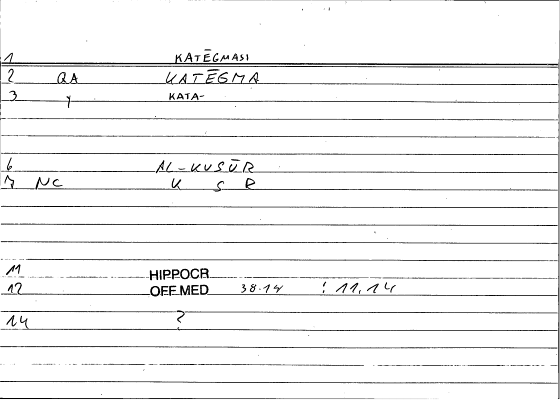 1 KATĒGMASI
2 QA KATĒGMA
3 Y KATA-
6 AL-KUSŪR
7 NC K S R
11 HIPPOCR
12 OFF.MED 38.14 : 11,14
14 ?